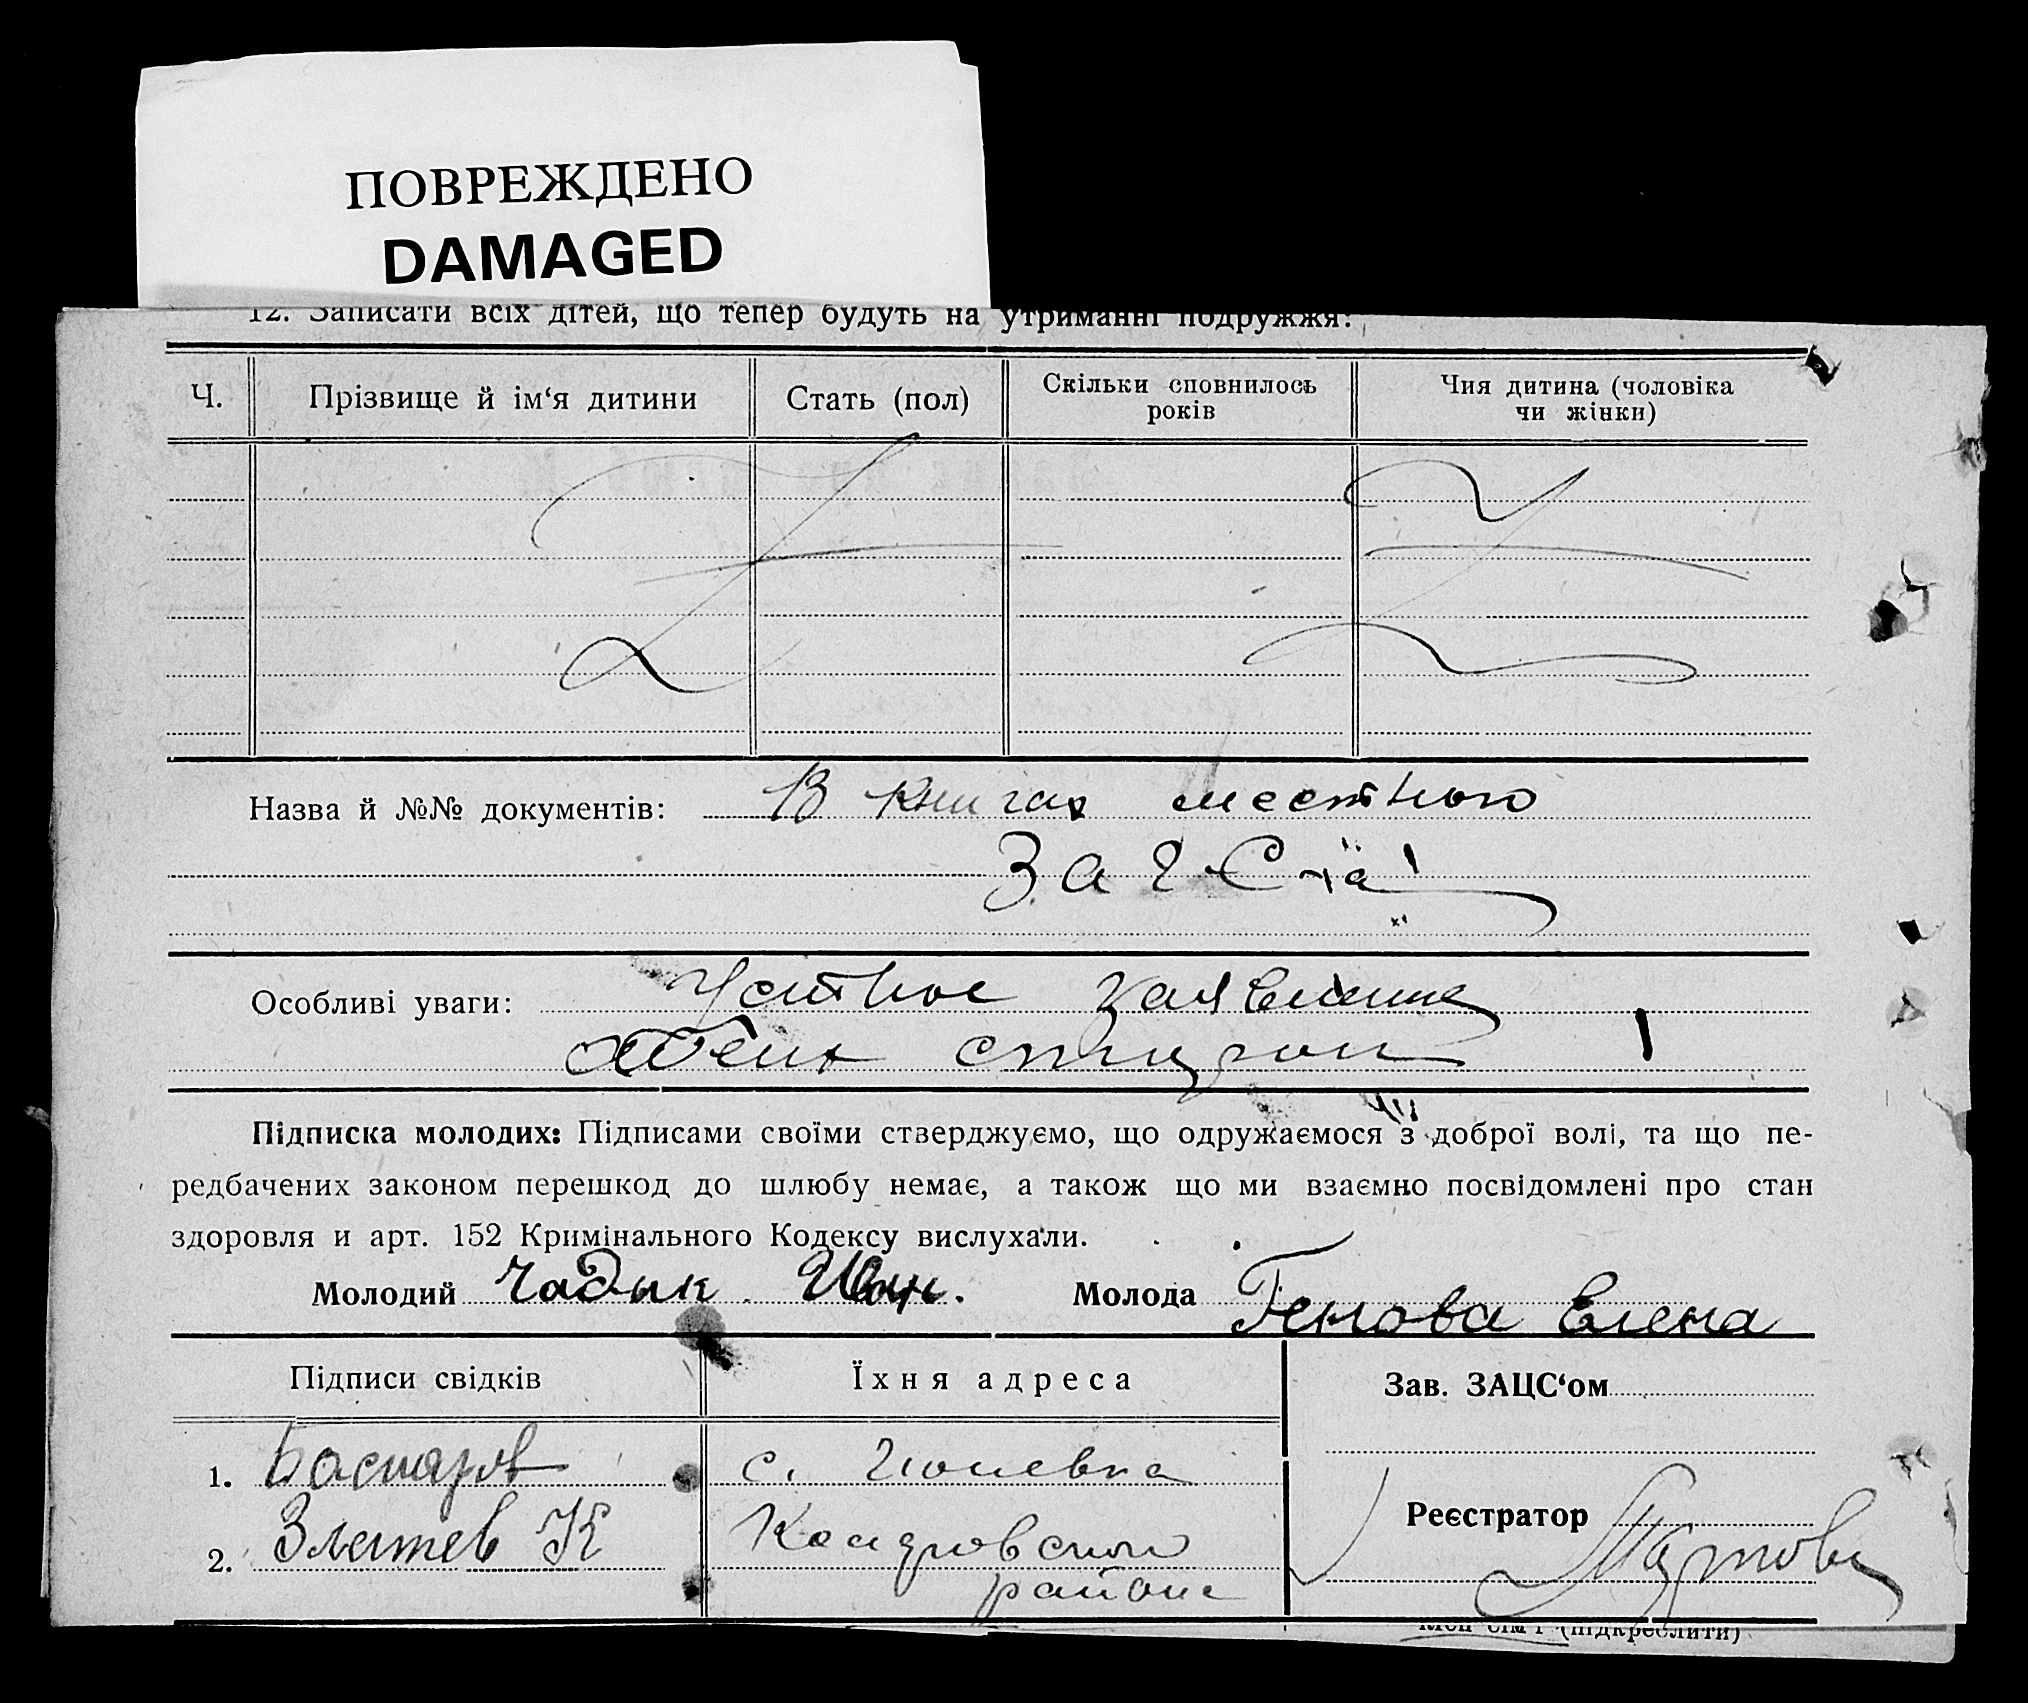 ПОВРЕЖДЕНО
DAMAGED
12. Записати всіх дітей, що тепер будуть на утриманні подружжя:
Ч. Прізвище й ім‘я дитини Стать (пол) Скільки сповнилось років Чия дитина (чоловіка чи жінки)
Назва й №№ документів: В книгах местного
Загс-а
Особливі уваги: Устное заявление
обеих сторон
Підписка молодих: Підписами своїми стверджуємо, що одружаємося з доброї волі, та що пе-
редбачених законом перешкод до шлюбу немає, а також що ми взаємно посвідомлені про стан
здоровля и арт. 152 Кримінального Кодексу вислухали.
Молодий Чадык Иван. Молода Генова Елена
Підписи свідків Їхня адреса Зав. ЗАЦС‘ом
1. с.
Реєстратор
2. Златев К
района
(підкреслити)